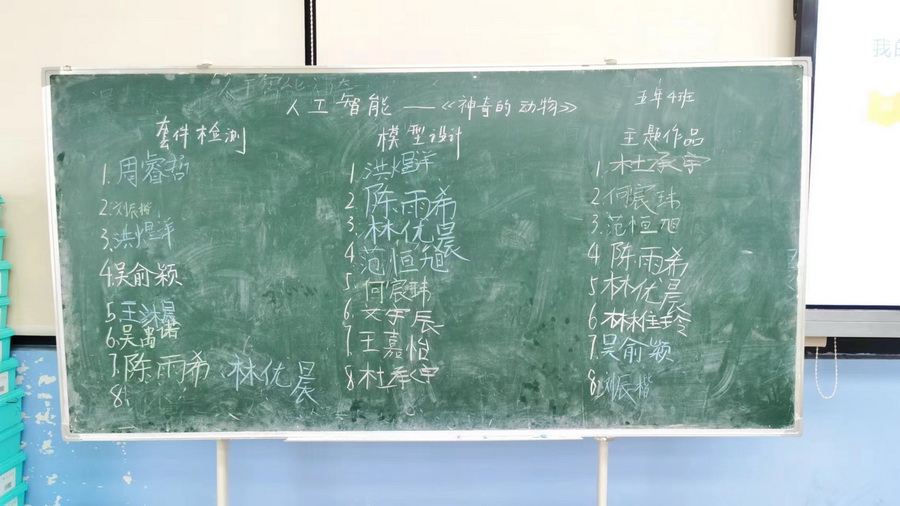 人工智能——《神奇的动物》
五年4班
套件检测
1.周睿哲
2.刘振楷
3.洪煜洋
4吴俞颖
5.王淋晨
6.吴禹诺
7.陈雨希 林优晨
8.
模型设计
1.洪煜洋
2 陈雨希
3.林优晨
4.范恒旭
5.何宸玮
6.文宇辰
7.王嘉怡
8.杜承宇
主题作品
1杜承宇
2.何宸玮
3.范恒旭
4 陈雨希
5林优晨
6林佳玲
7.吴俞颖
8.刘振楷
我的